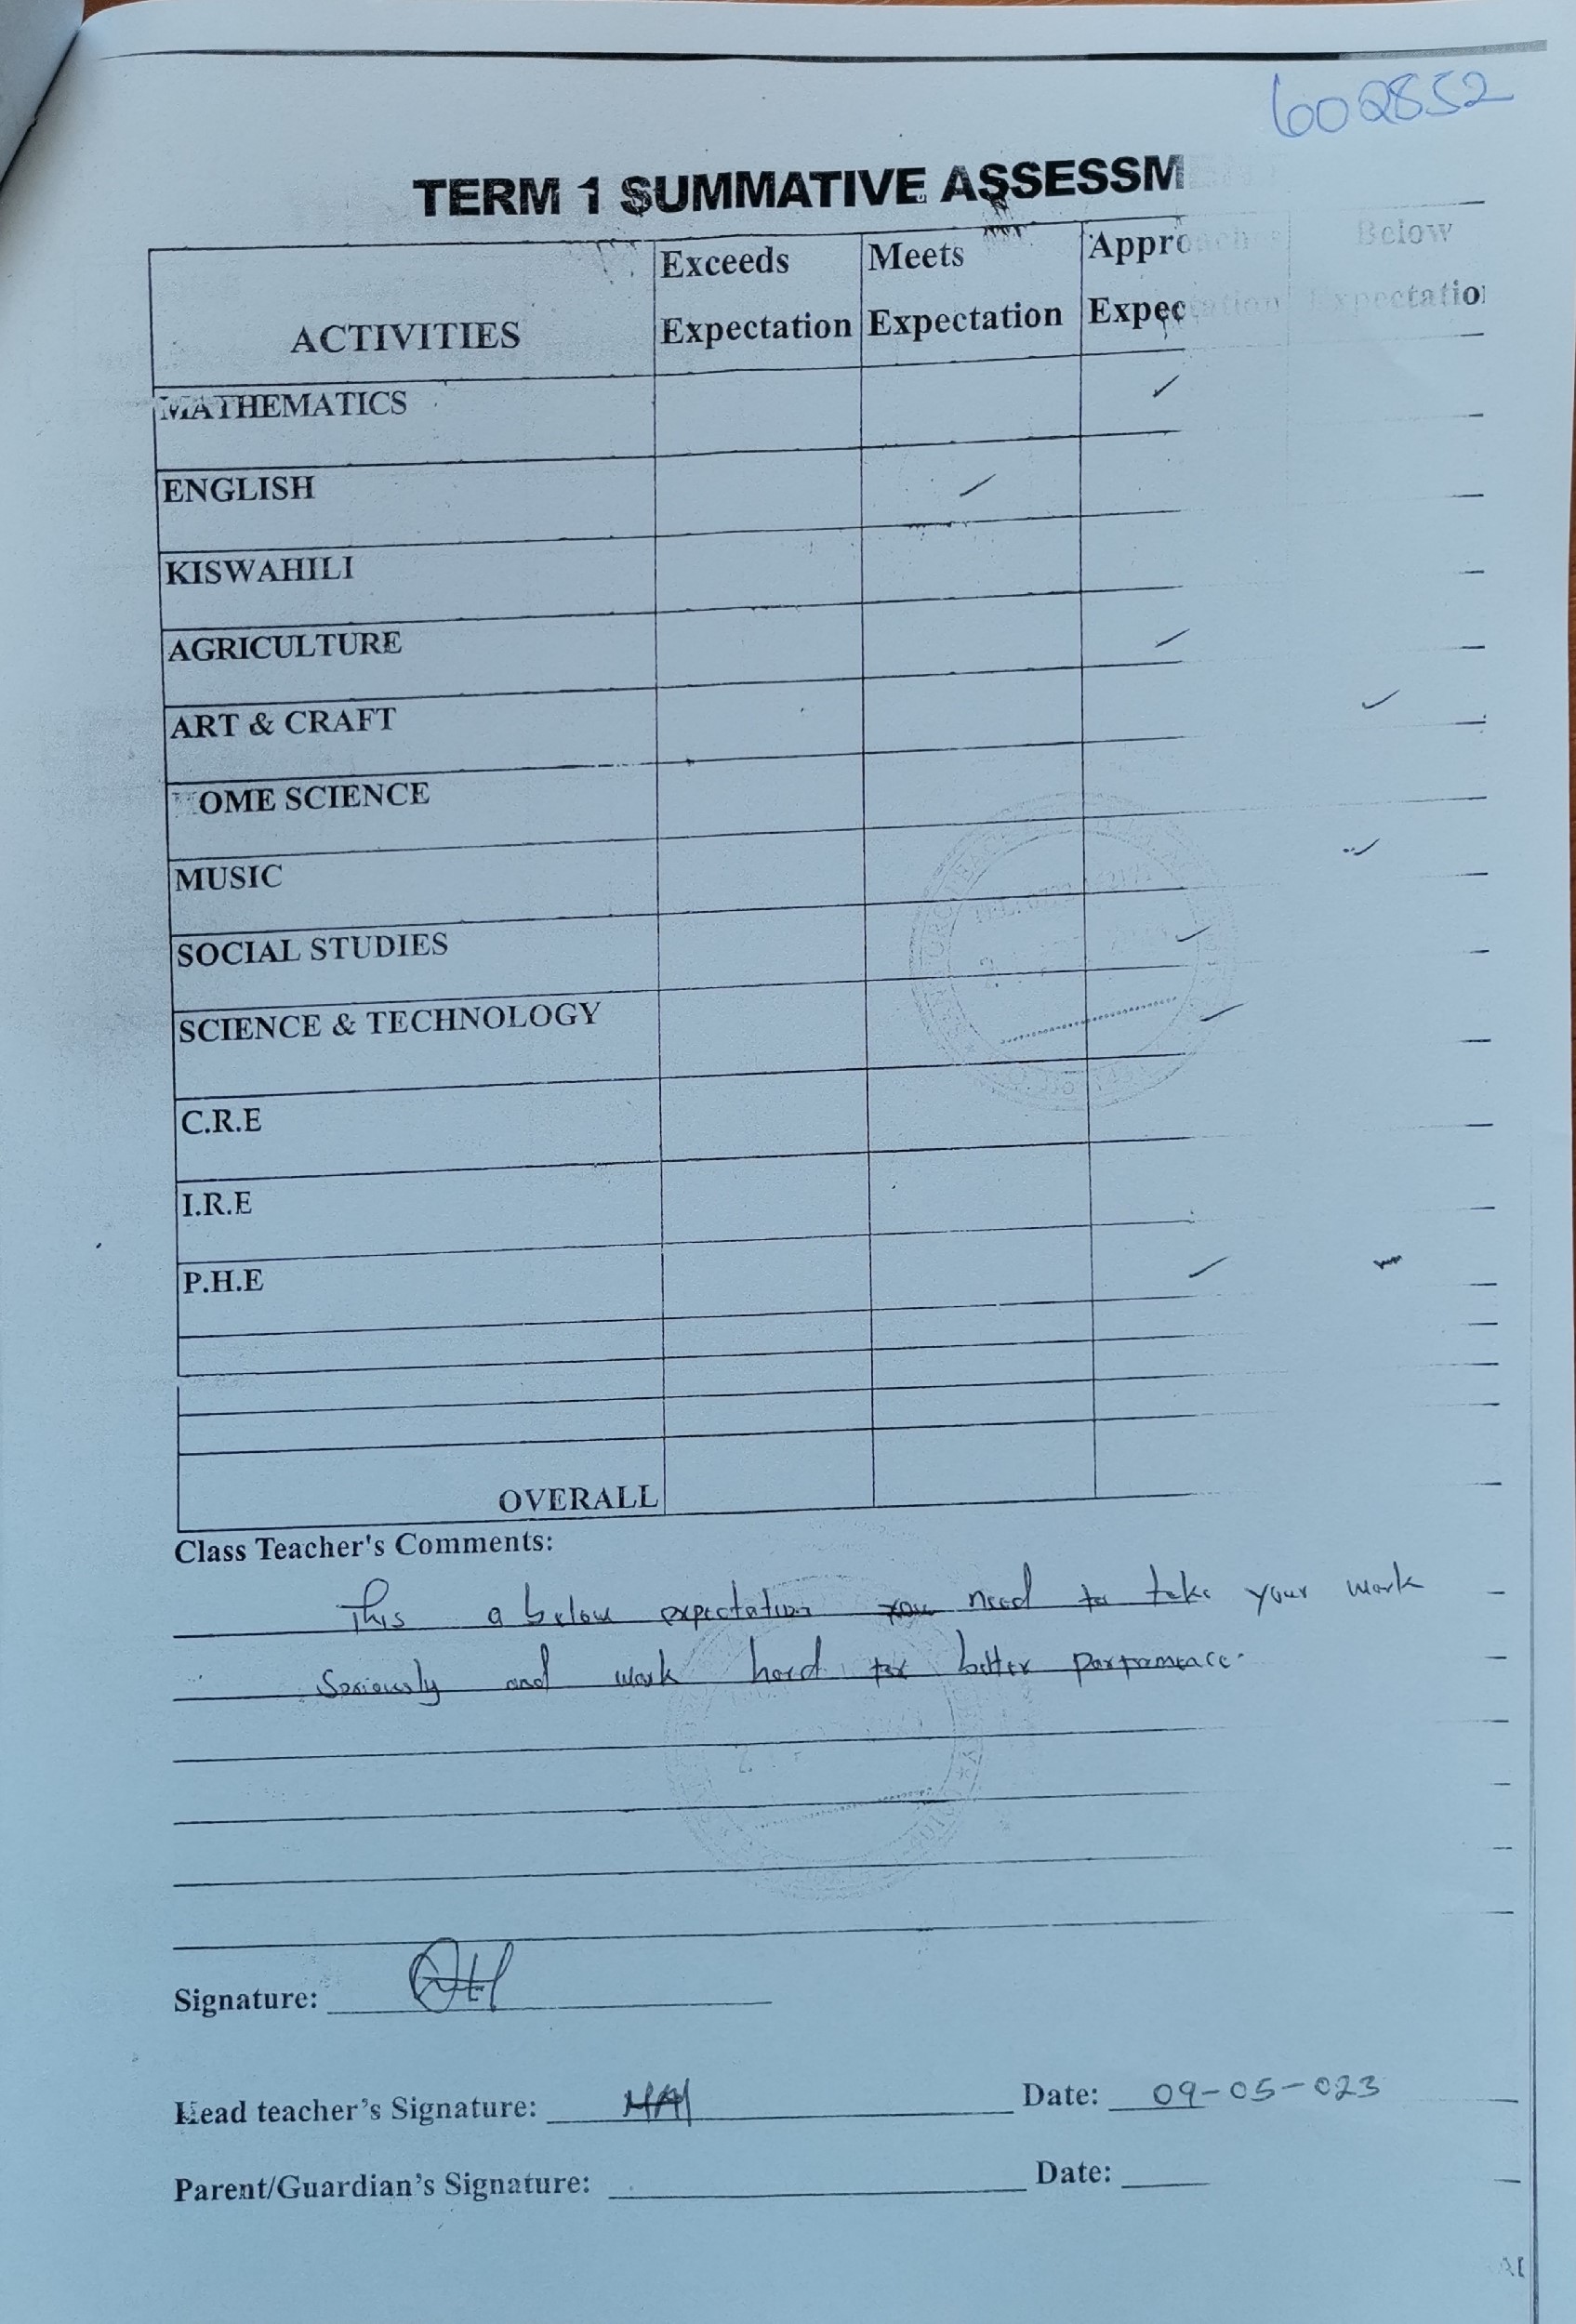 602852
TERM 1 SUMMATIVE ASSESSM
ACTIVITIES Exceeds Expectation Meets Expectation Approaches Expectation Below Expectation
MATHEMATICS ✓
ENGLISH ✓
KISWAHILI
AGRICULTURE ✓
ART & CRAFT ✓
OME SCIENCE
MUSIC ✓
SOCIAL STUDIES ✓
SCIENCE & TECHNOLOGY ✓
C.R.E
I.R.E
P.H.E ✓
OVERALL
Class Teacher's Comments:
This a below expectation you need to take your work
Seriously and work hard for better
Signature:
Head teacher's Signature: Date: 09-05-023
Parent/Guardian's Signature: Date: